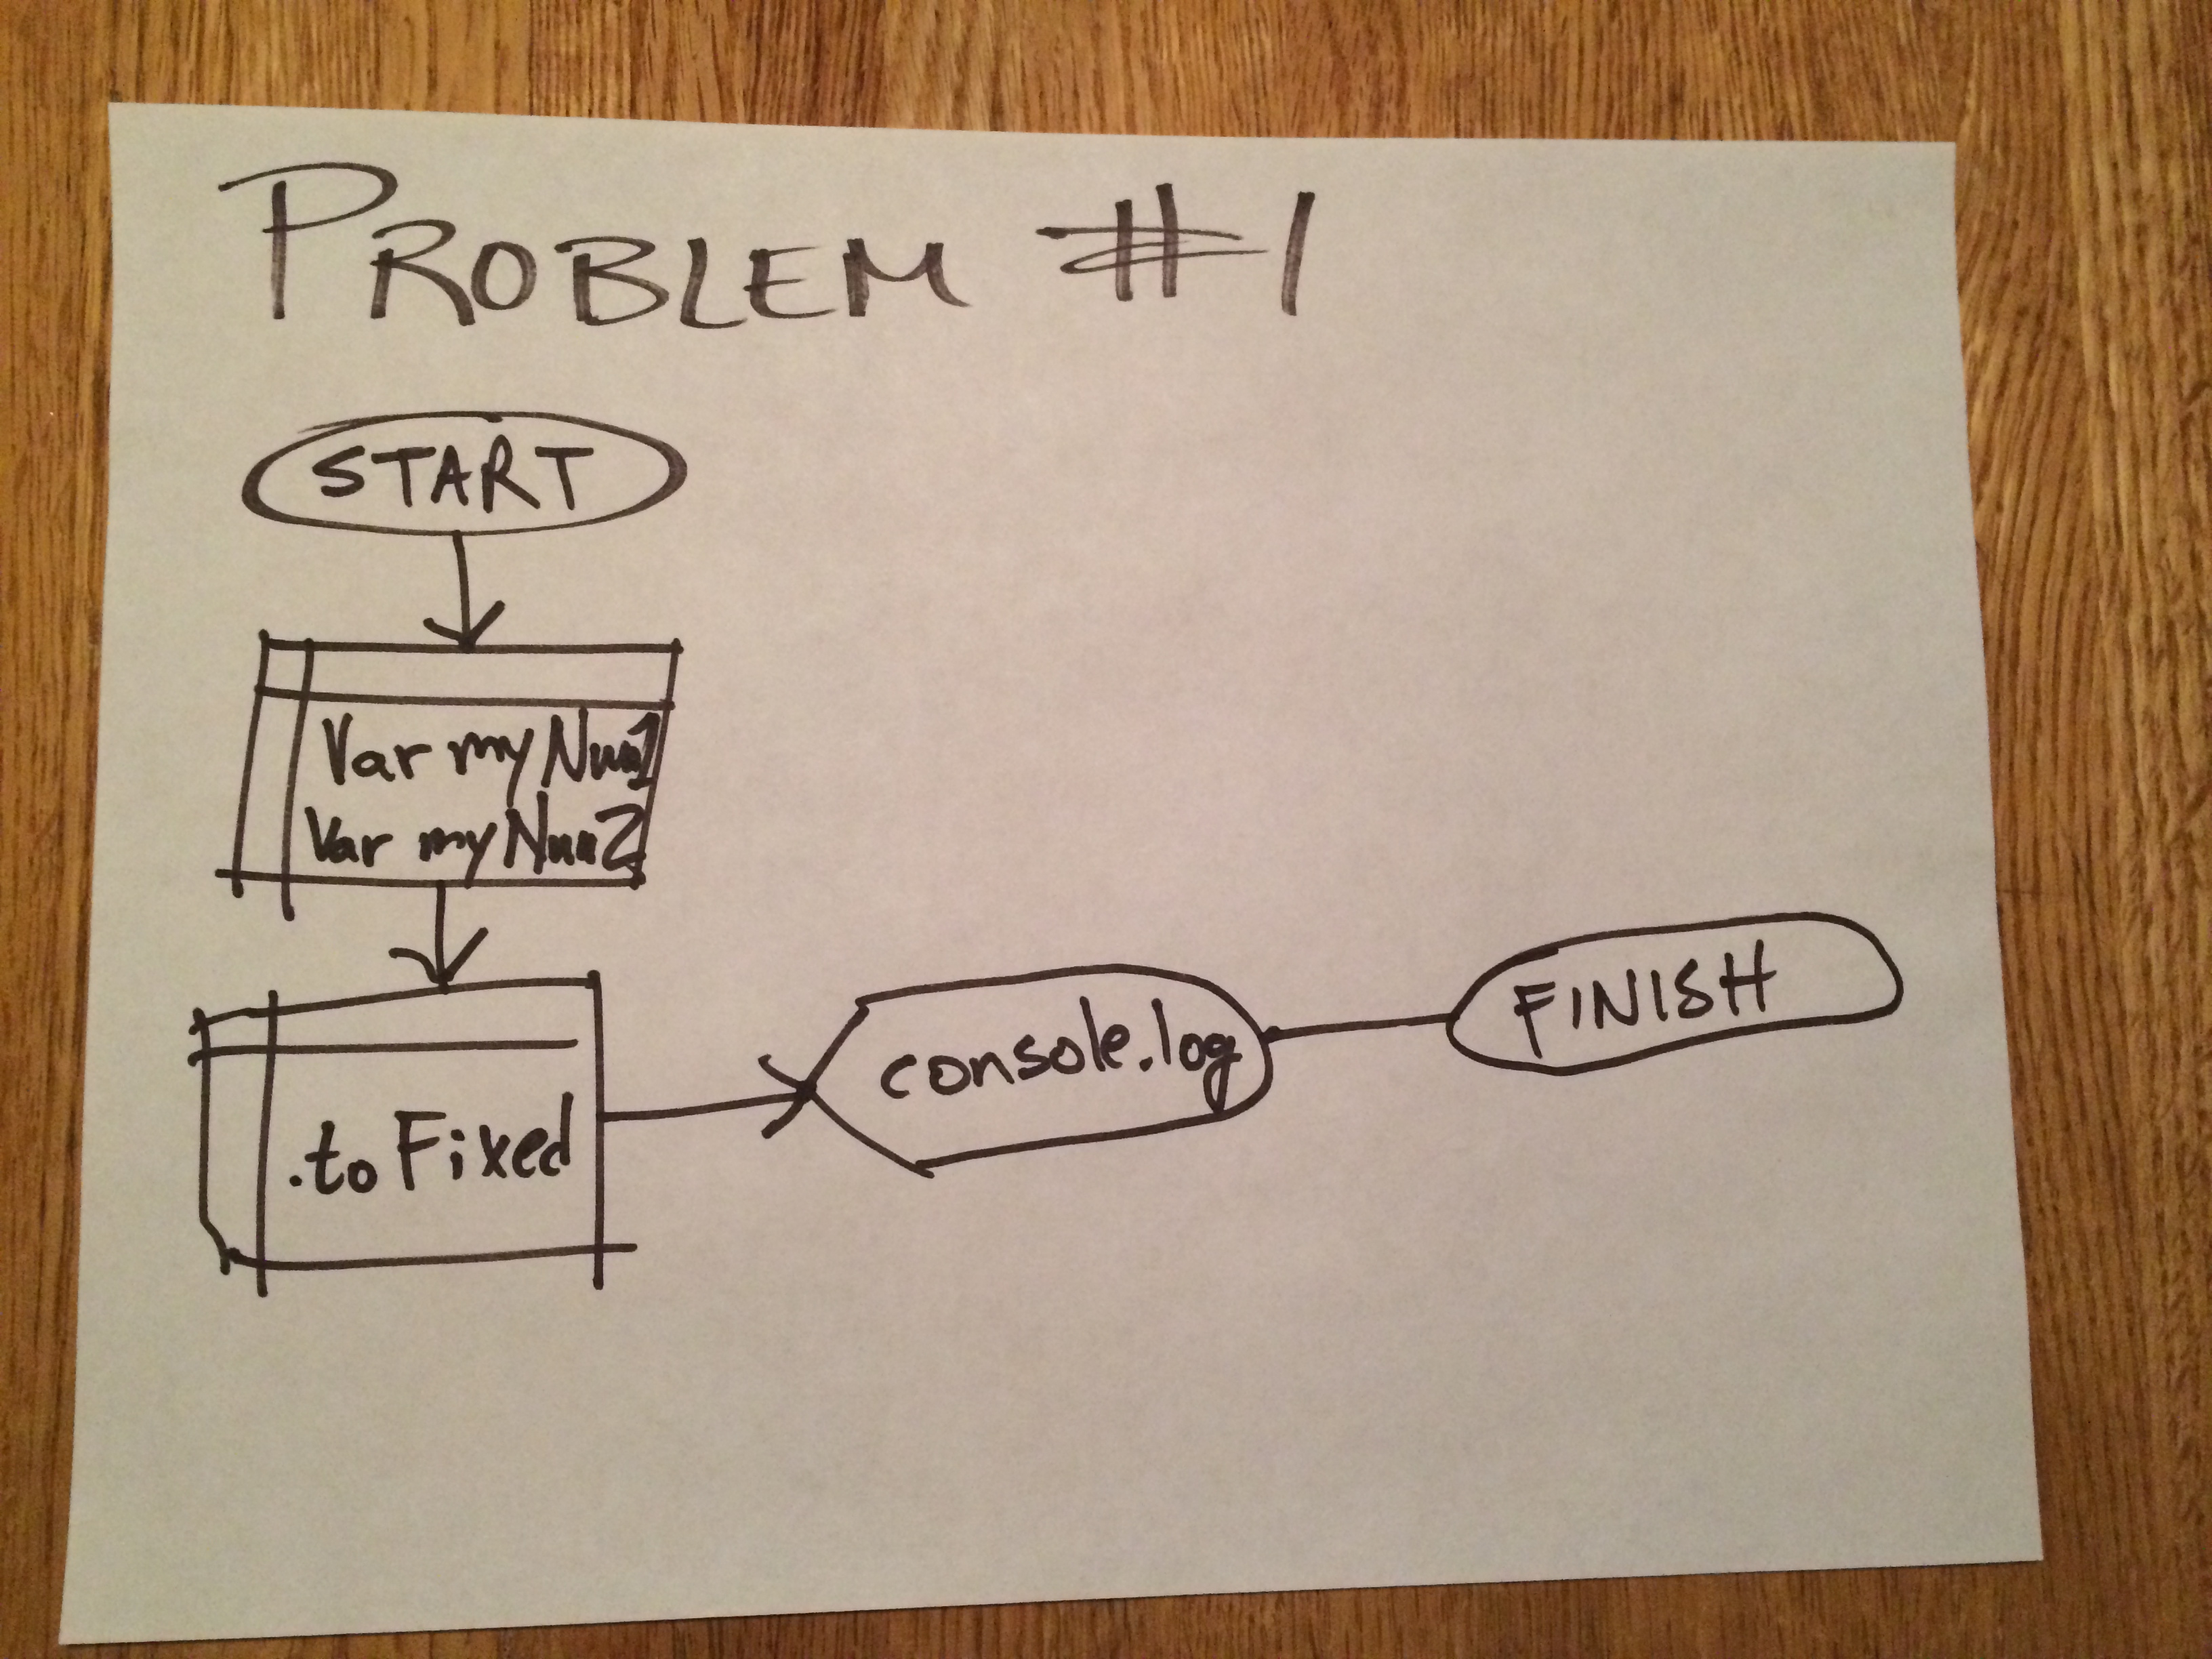 PROBLEM #1
START
Var myNum1
Var myNum2
.toFixed
console.log
FINISH